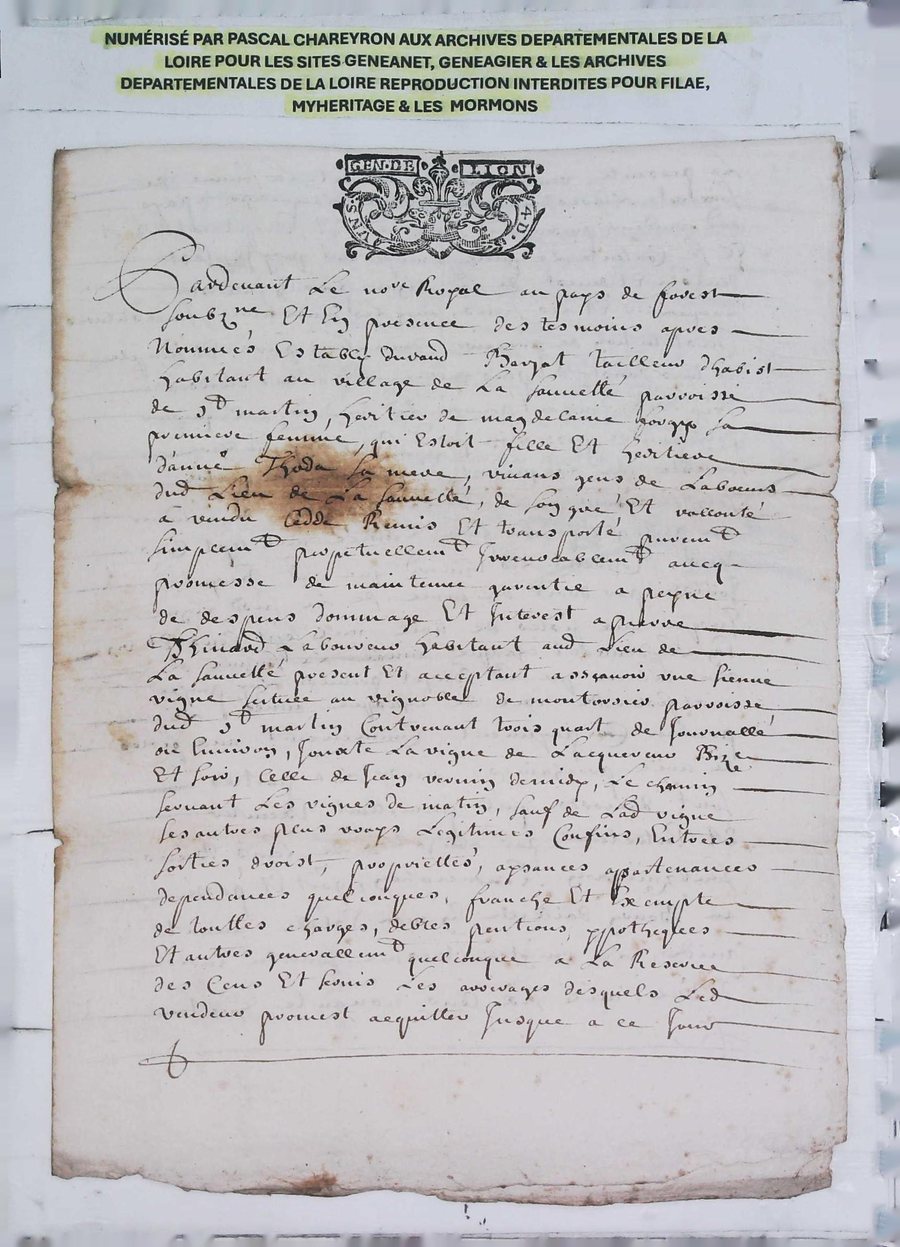 NUMÉRISÉ PAR PASCAL CHAREYRON AUX ARCHIVES DEPARTEMENTALES DE LA
LOIRE POUR LES SITES GENEANET, GENEAGIER & LES ARCHIVES
DEPARTEMENTALES DE LA LOIRE REPRODUCTION INTERDITES POUR FILAE,
MYHERITAGE & LES MORMONS
GEN·DE LION
UN·S· 4·D·
Pardevant Le nore Royal au pays de forest
soubzne Et En presence des tesmoins apres
Nommés Estably durand tailleur dhabist
habitant au village de La sauvetté parroisse
de st martin, heritier de magdelaine sa
premiere femme, qui Estoit fille Et heritiere
danne Thoda sa mere, vivans gens de Labeurs
dud Lieu de La sauvetté, de son gré Et vollonté
a vendu cedde Remis Et transporté puremt
simplemt perpetuellemt Irrevocablemt avecq
promesse de maintenue garentie a peyne
de despens dommage Et Interest a pierre
Thinard Laboureur habitant aud Lieu de
La sauvetté present Et acceptant assçavoir une sienne
vigne scituée au vignoble de parroisse
dud st martin Contenant trois quart de Journallé
ou Environ, Jouxte La vigne de Lacquereur Bize
Et soir, celle de Jean vernin de midy, Le chemin
servant Les vignes de matin, sauf de Lad vigne
ses autres plus vrays Legitimes Confins, Entrées
sorties droist, proprietés, aysances appartenances
dependances quelconques, franche Et Exempte
de touttes charges, debtes pentions, ypotheques
Et autres generallemt quelconque a La Reserve
des Cens Et servis Les arrerages desquels Led
vendeur promest acquitter Jusque a ce Jour